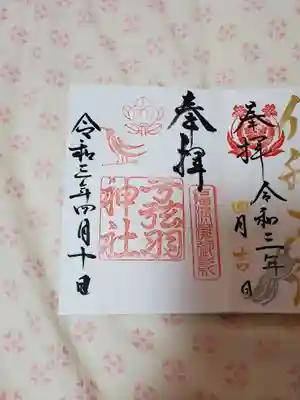 奉拝
令和三年
四月吉日
奉拝
弓弦羽
神社
令和三年四月十日